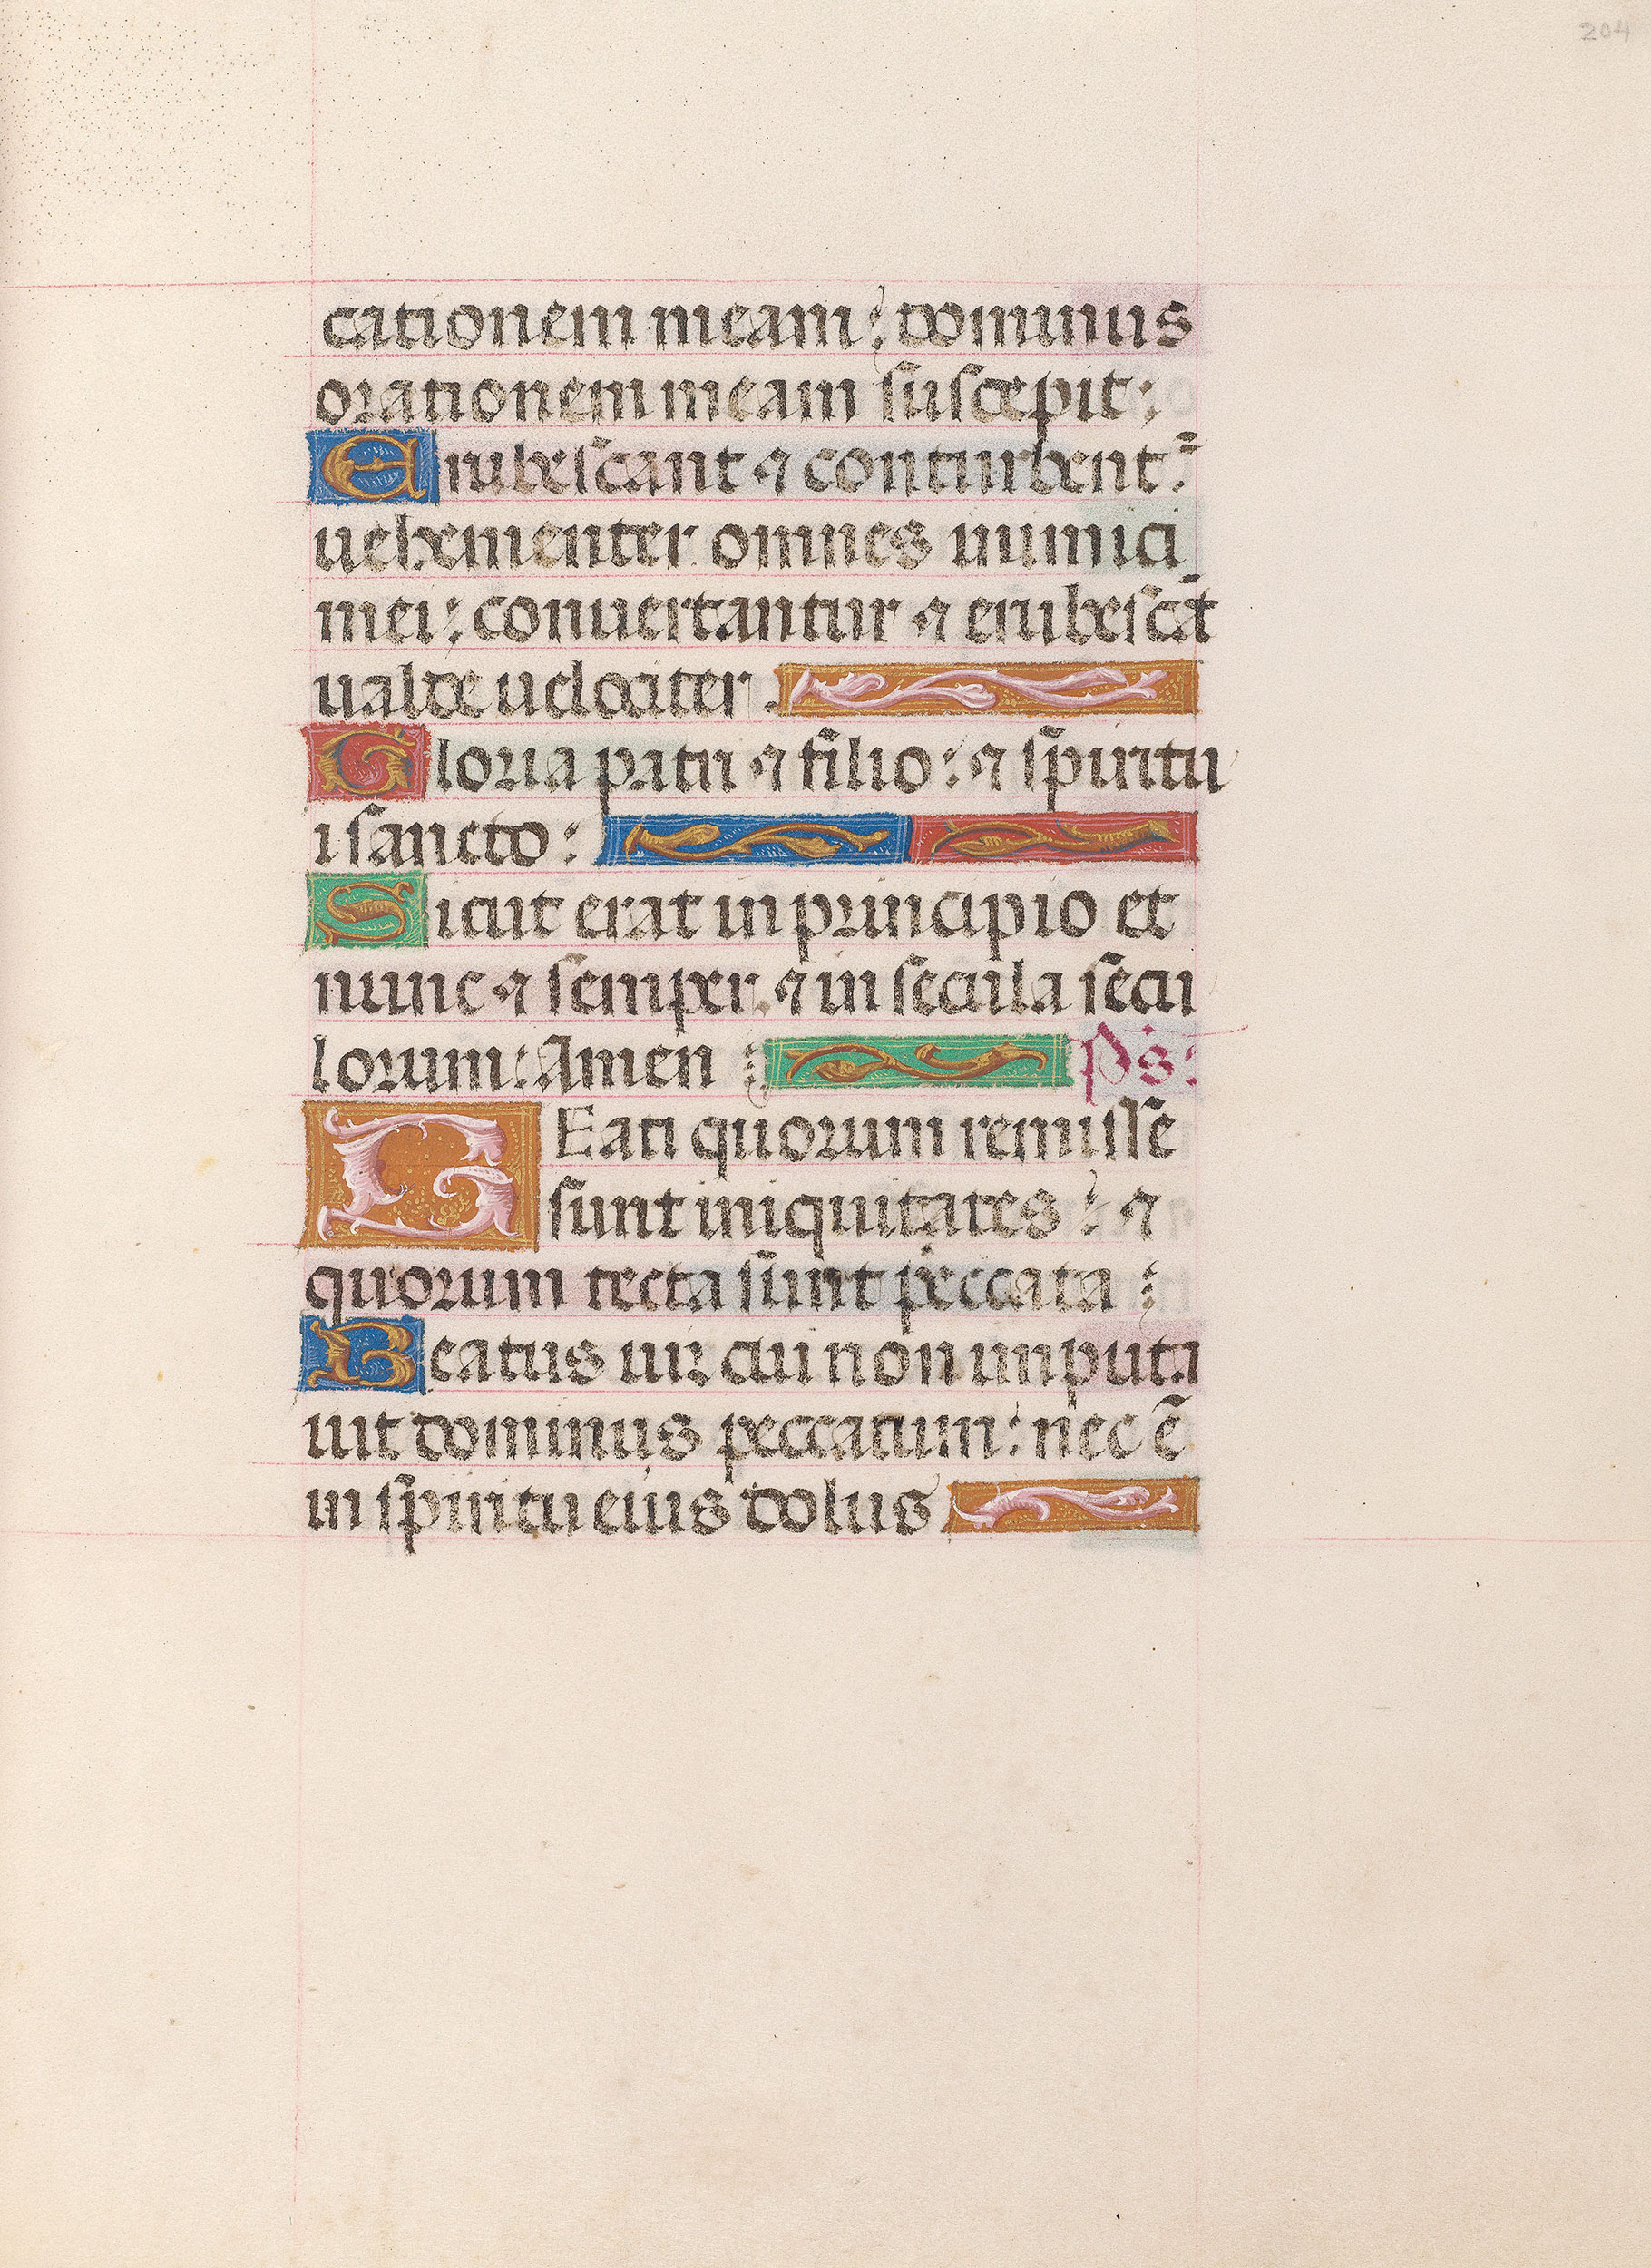 204
cationem meam: dominus
orationem meam suscepit:
Erubescant ⁊ conturbent:
uehementer omnes inimici
mei: conuertantur ⁊ erubescāt
ualde uelociter.
Gloria patri ⁊ filio: ⁊ spiritu
i sancto:
Sicut erat in principio et
nunc ⁊ semper. ⁊ in secula secu
lorum: Amen: Ps:
GEati quorum remisse
sunt iniquitates: ⁊
quorum tecta sunt peccata:
Beatus uir cui non imputa
uit dominus peccatum: nec ē
in spiritu eius dolus